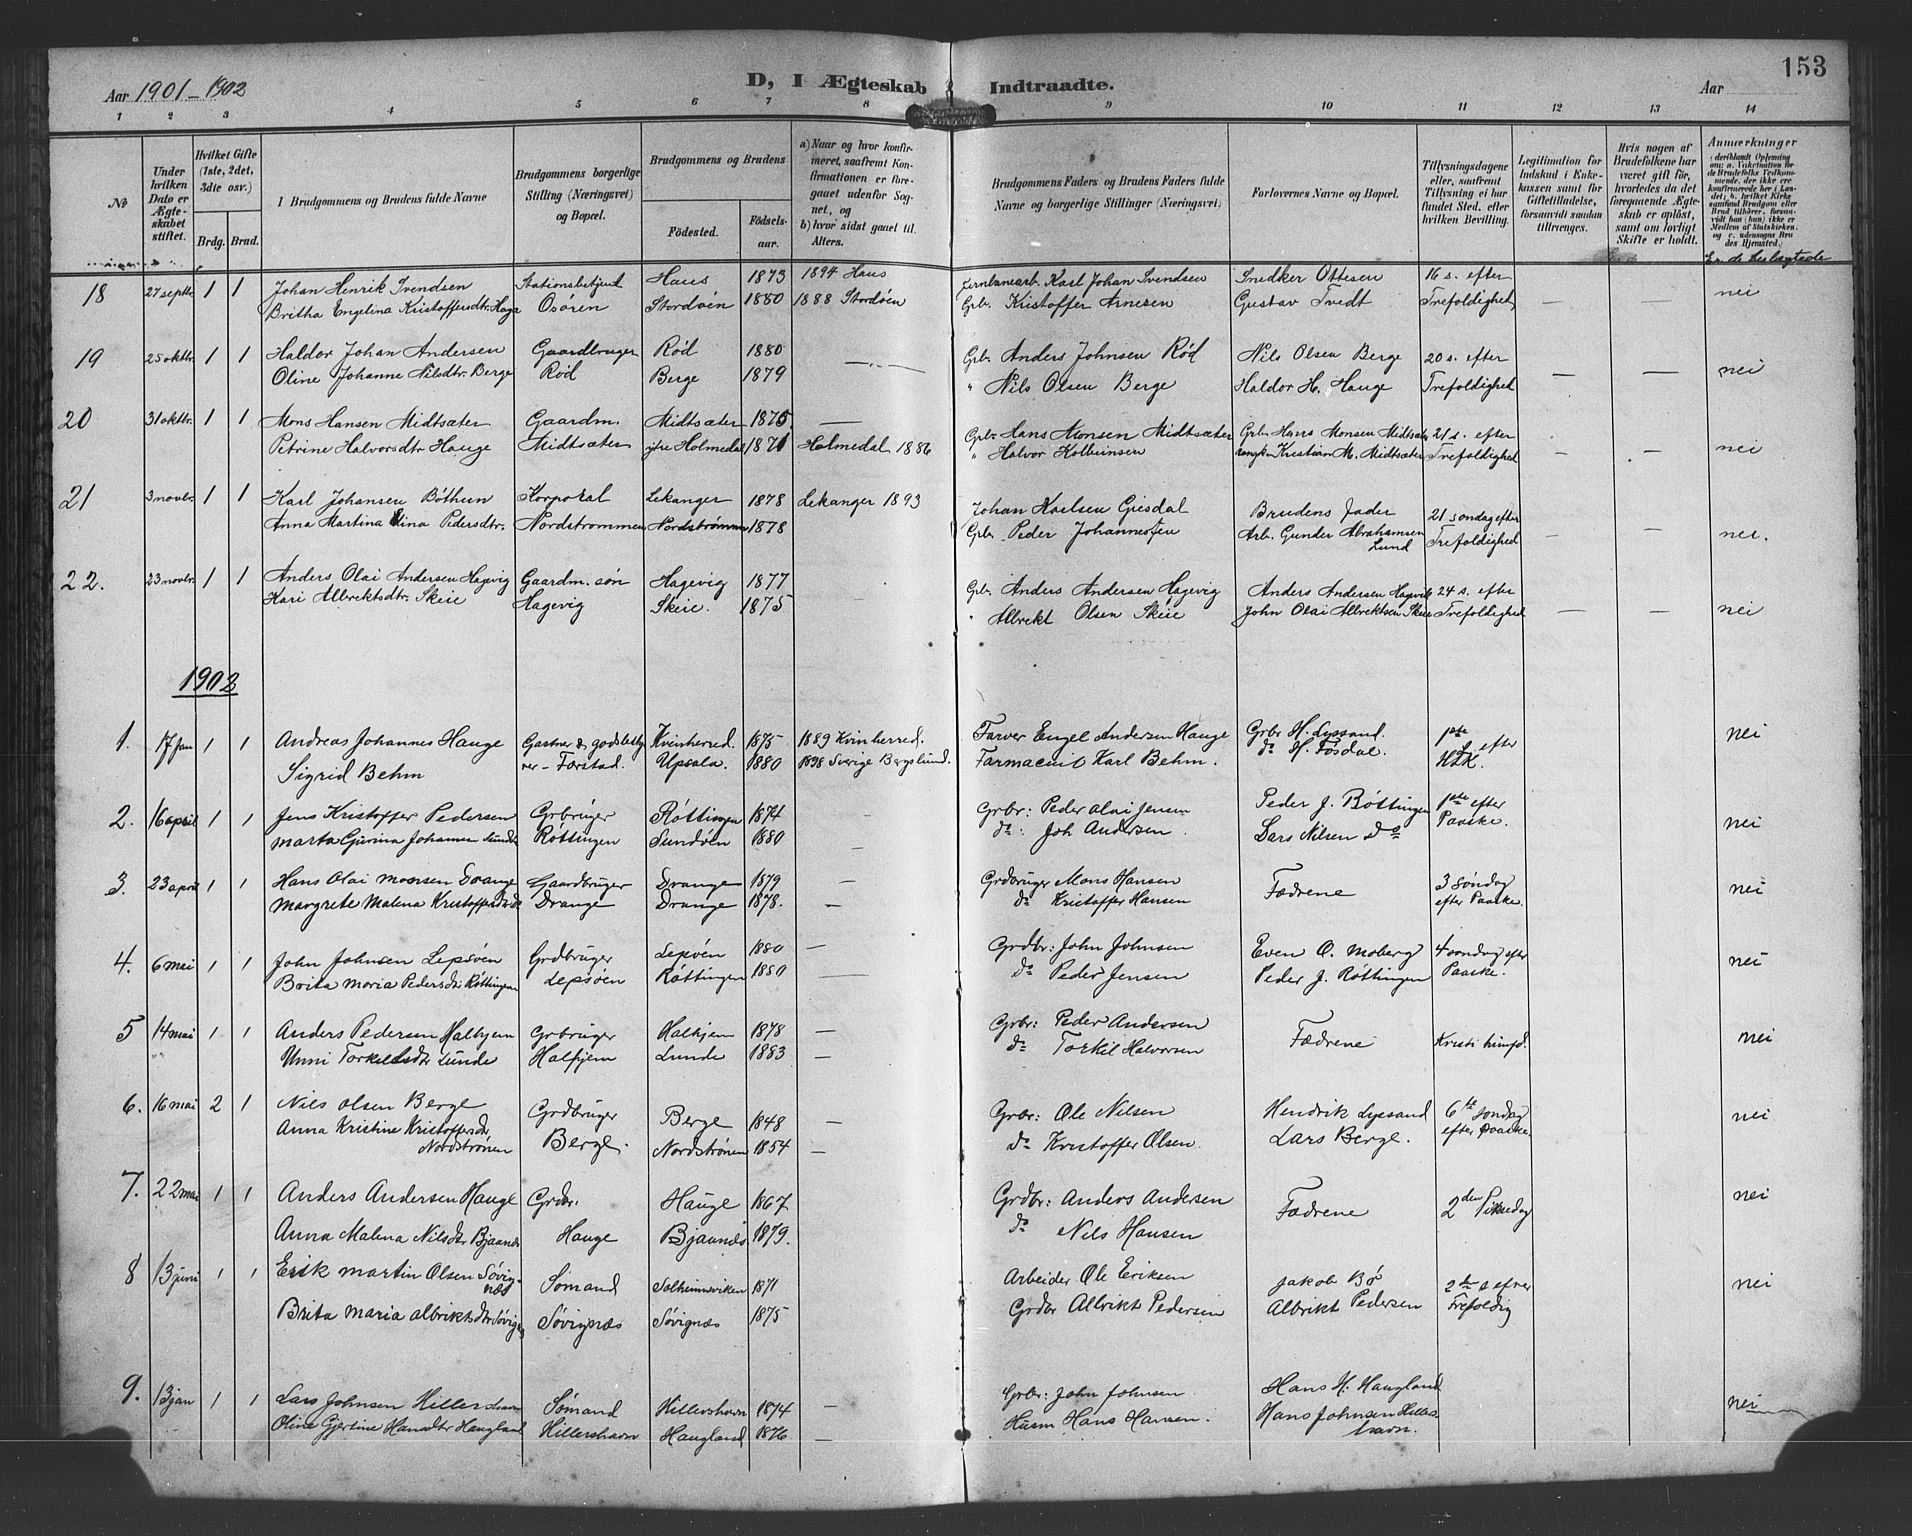 Aar 1901-1902
D, I Ægteskab Indtraadte.
Aar
153
1 2 3 4 5 6 7 8 9 10 11 12 13 14
No
Under hvilken Dato er Ægteskabet stiftet.
Hvilket Gifte (1ste, 2det, 3die osv.)
Brdg. Brud.
I Brudgommens og Brudens fulde Navne
Brudgommens borgerlige Stilling (Næringsvei) og Bopæl.
Brudgommens og Brudens
Födested.
Födselsaar.
a) Naar og hvor konfirmeret, saafremt Konfirmationen er foregaaet udenfor Sognet, og
b) hvor sidst gaaet til Alters.
Brudgommens Faders og Brudens Faders fulde Navne og borgerlige Stillinger (Næringsvei)
Forlovernes Navne og Bopæl.
Tillysningsdagene eller, saafremt Tillysning ei har fundet Sted, efter hvilken Bevilling.
Legitimation for Indskud i Enkekassen samt for Giftetilladelse, forsaavidt saadan tiltrænges.
Hvis nogen af Brudefolkene har været gift før, hvordes da det foregaaende Ægteskab er opløst, samt om lovligt Skifte er holdt.
Anmerkninger
Er de beslægtede
18 27 septbr. 1 1 Johan Henrik Svendsen Stationsbetjent Haus 1873 1894 Haus Jernbanearb. Karl Johan Svendsen Snedker Ottesen 16 s. efter
Britha Engelina Kristoffersdtr. Haga Osören Stordöen 1880 1888 Stordöen Grb. Kristoffer Arnesen Gustav Tvedt Trefoldighed — nei
19 25 oktbr. 1 1 Haldor Johan Andersen Gaardbruger Röd 1880 — Grb. Anders Johnsen Röd Nils Olsen Berge 20 s. efter
Oline Johanne Nilsdtr. Berge Röd Berge 1879 " Nils Olsen Berge Haldor H. Hauge Trefoldighed — — nei
20 31 oktbr. 1 1 Mons Hansen Midtsæter Gaardm. Midtsæter 1875 — Grb. Hans Monsen Midtsæter Grb. Hans Monsen Midtsæter 21 s. efter
Petrine Halvorsdtr Hauge Midtsæter ytre Holmedal 1871 Holmedal 1886 " Halvor Kolbeinsen Kristian M. Midtsæter Trefoldighed — — nei
21 3 novbr. 1 1 Karl Johansen Böthun Korporal Lekanger 1878 Lekanger 1893 Johan Karlsen Giesdal Brudens Fader 21 söndag efter
Anna Martina Elina Pedersdtr. Nordstrømmen Nordstrømmen 1878 Grb. Peder Johannessen Arb. Gunder Abrahamsen Lund Trefoldighed — — nei.
22. 23 novbr. 1 1 Anders Olai Andersen Hagevig Gaardm. sön Hagevig 1877 Grb. Anders Andersen Hagevig Anders Andersen Hagevik 24 s. efter
Kari Albrektsdtr. Skeie Hagevig Skeie. 1875 — " Albrekt Olsen Skeie John Olai Albrektsen Skeie Trefoldighed — — nei
1902
1. 17 jan 1 1 Andreas Johannes Hauge Gartner & godsbesty- Kvinherred. 1875 1889 Kvinherred. Farver Engel Andersen Hauge Grbr H. Lyssand. 1ste efter nei
Sigrid Behm rer - Færstad. Upsala. 1880 1898 Sverige Bergslund. Farmaceut Karl Behm. do H. Fosdal. H3K.
2. 16 april 1 1 Jens Kristoffer Pedersen Grbrüger Röttingen 1874 Grbr: Peder Olai Jensen Peder J. Röttingen 1ste efter
Marta Gurina Johannsen Sundö Röttingen Sundöen 1880 — do: Joh Andersen. Lars Nilsen do Paaske. nei
3. 23 april 1 1 Hans Olai Monsen Drange Gaardbruger Drange 1879 — Grdbruger Mons Hansen Fædrene 3 söndag nei
Margrete Malena Kristoffersdtr Drange Drange 1878. — do Kristoffer Hansen efter Paaske.
4. 6 mai 1 1 John Johnsen Lepsöen Grdbruger Lepöen 1880 — Grdbr: John Johnsen Even O. Moberg 4 söndag efter nei
Brita Maria Pedersdtr Röttingen Lepsöen Röttingen 1880 — do Peder Jensen Peder J. Röttingen Paaske.
5 14 mai 1 1 Anders Pedersen Halhjem Grbruger Halhjem 1878 — Grbr: Peder Andersen Fædrene Kristi himfd. nei
Unni Torkildsdtr Lunde Halhjem Lunde 1883 — do Torkil Halvorsen
6. 16 mai 2 1 Nils Olsen Berge Grdbruger Berge 1848 — Grbr: Ole Nilsen Hendrik Lyssand 6te söndag nei
Anna Kristine Kristoffersdtr Nordströnen Berge. Nordströnen 1854 — do Kristoffer Olsen. Lars Berge. efter Paaske.
7. 22 mai 1 1 Anders Andersen Hauge Grdbr. Hauge 1867 Grdbr: Anders Andersen Fædrene 2den Pinsedag nei
Anna Malena Nilsdtr Bjaanæs Hauge Bjaanæs 1879. do Nils Hansen
8 13 juni 1 1 Erik Martin Olsen Sövignæs Sömand Solheimsviken 1871 Arbeider Ole Eriksen Jakob Bö 2den s efter nei
Brita Maria Albriktsdtr Sövignæs Sövignæs Sövignæs 1875 Grdbr Albrikt Pedersen Albrikt Pedersen Trefoldig
9. 13 jan 1 1 Lars Johnsen Hillershavn Sömand Hillershavn 1874 — Grbr: John Johnsen Hans H. Haugland nei
Oline Gjertine Hansdtr Haugland Hillershavn Haugland 1876 — Husm Hans Hansen. Hans Johnsen Hillershavn.